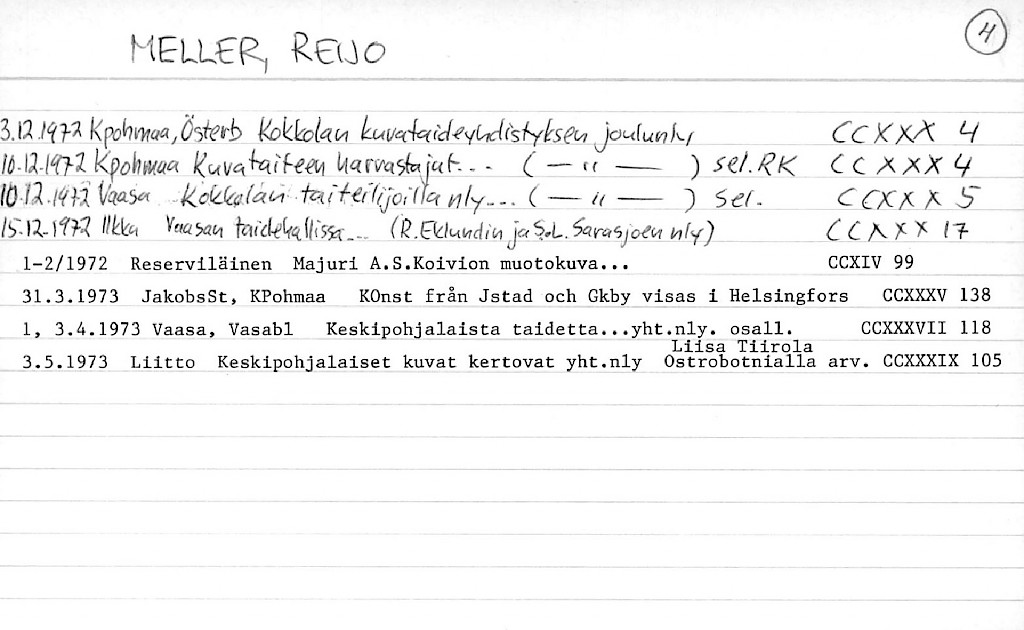 MELLER, REIJO 4
3.12.1972 Kpohmaa, Österb Kokkolan kuvataideyhdistyksen joulunly CCXXX 4
10.12.1972 Kpohmaa Kuvataiteen harrastajat... ( — " — ) sel. RK CCXXX 4
10.12.1972 Vaasa Kokkolan taiteilijoilla nly... ( — " — ) sel. CCXXX 5
15.12.1972 Ilkka Vaasan taidehallissa... (R. Eklundin ja S.L. Sarasjoen nly) CCXXX 17
1-2/1972 Reserviläinen Majuri A.S.Koivion muotokuva... CCXIV 99
31.3.1973 JakobsSt, KPohmaa KOnst från Jstad och Gkby visas i Helsingfors CCXXXV 138
1, 3.4.1973 Vaasa, Vasabl Keskipohjalaista taidetta...yht.nly. osall. CCXXXVII 118
Liisa Tiirola
3.5.1973 Liitto Keskipohjalaiset kuvat kertovat yht.nly Ostrobotnialla arv. CCXXXIX 105